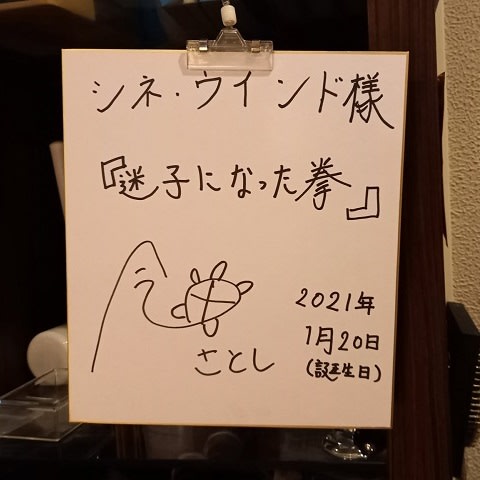 シネ・ウインド様
『迷子になった拳』
今
さとし
2021年
1月20日
(誕生日)